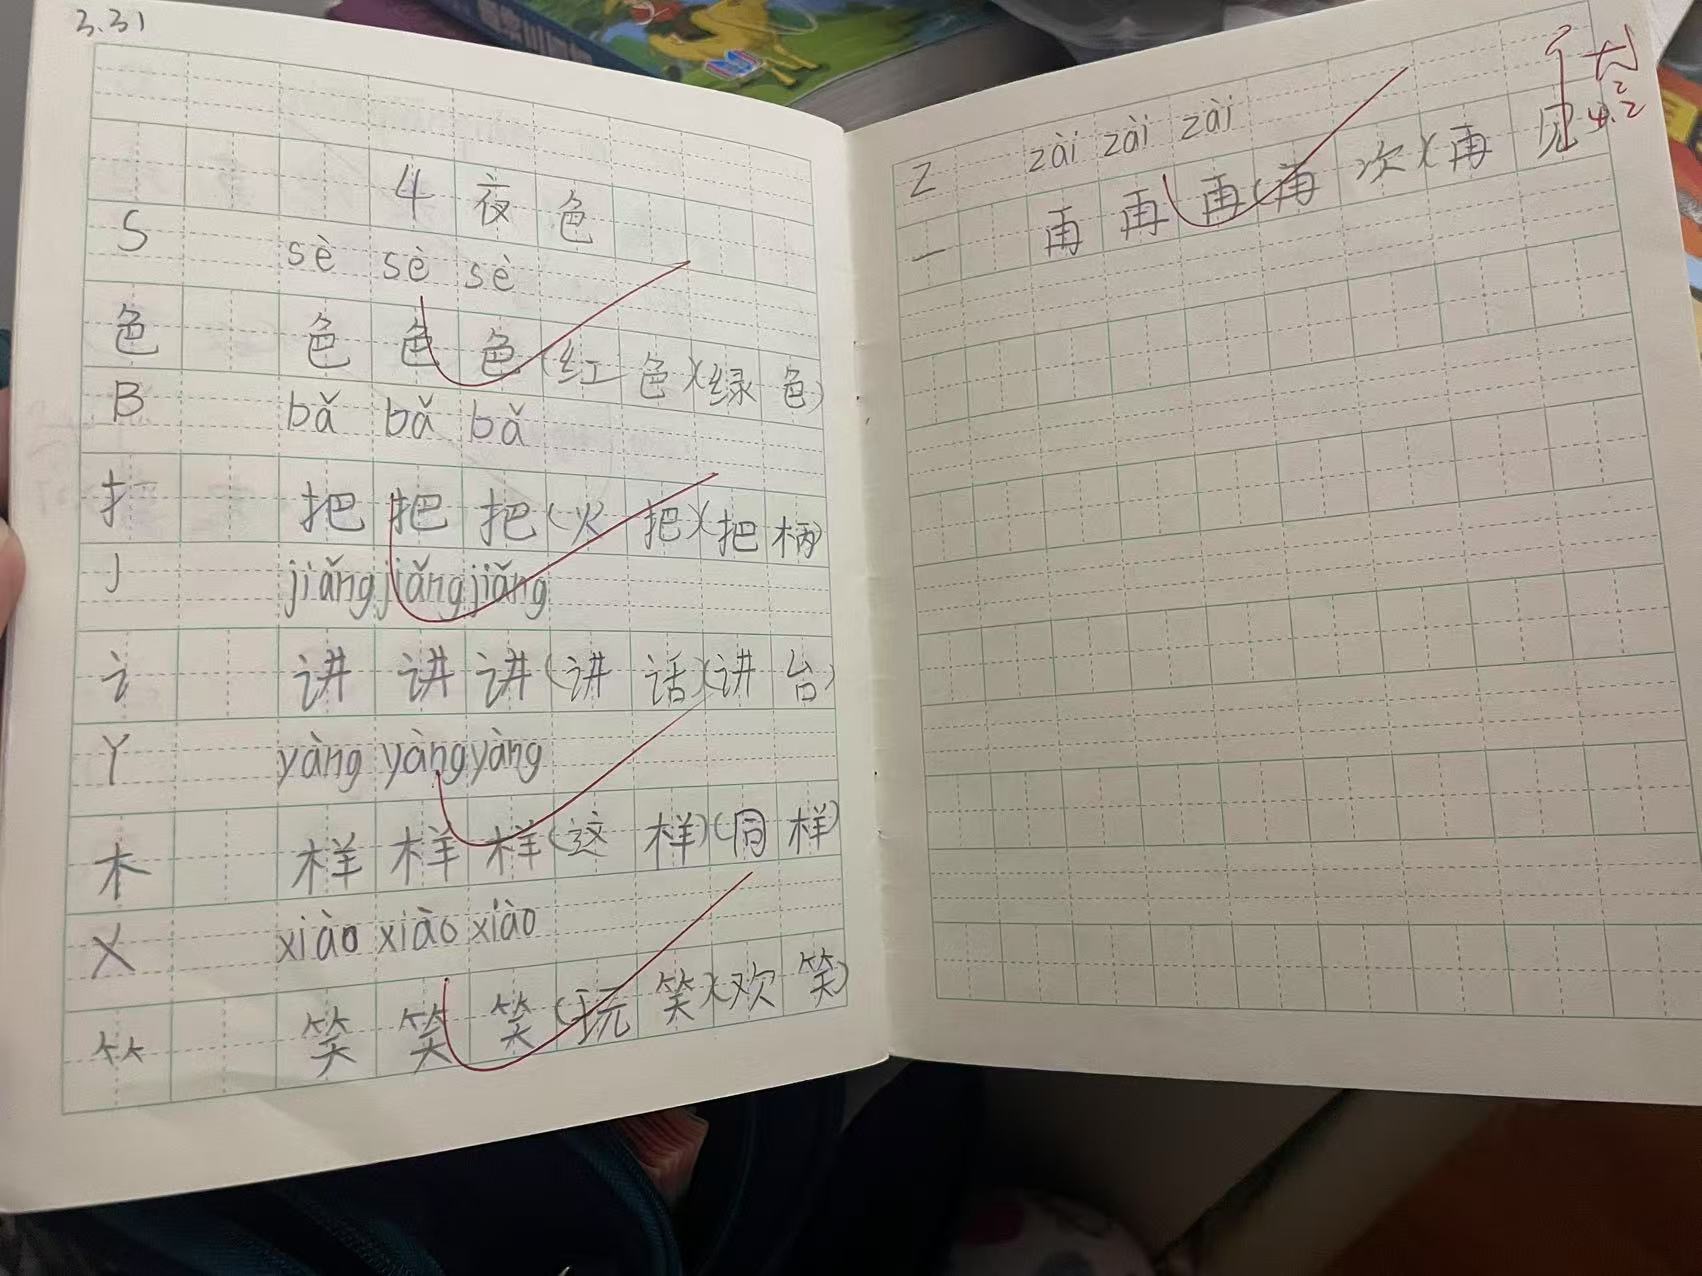 3.31
4 夜色
S sè sè sè
色 色 色 色(红色)(绿色)
B bǎ bǎ bǎ
扌 把 把 把(火把)(把柄)
J jiǎng jiǎng jiǎng
讠 讲 讲 讲(讲话)(讲台)
Y yàng yàng yàng
木 样 样 样(这样)(同样)
X xiào xiào xiào
⺮ 笑 笑 笑(玩笑)(欢笑)
Z zài zài zài
一 再 再 再(再次)(再见
4.2